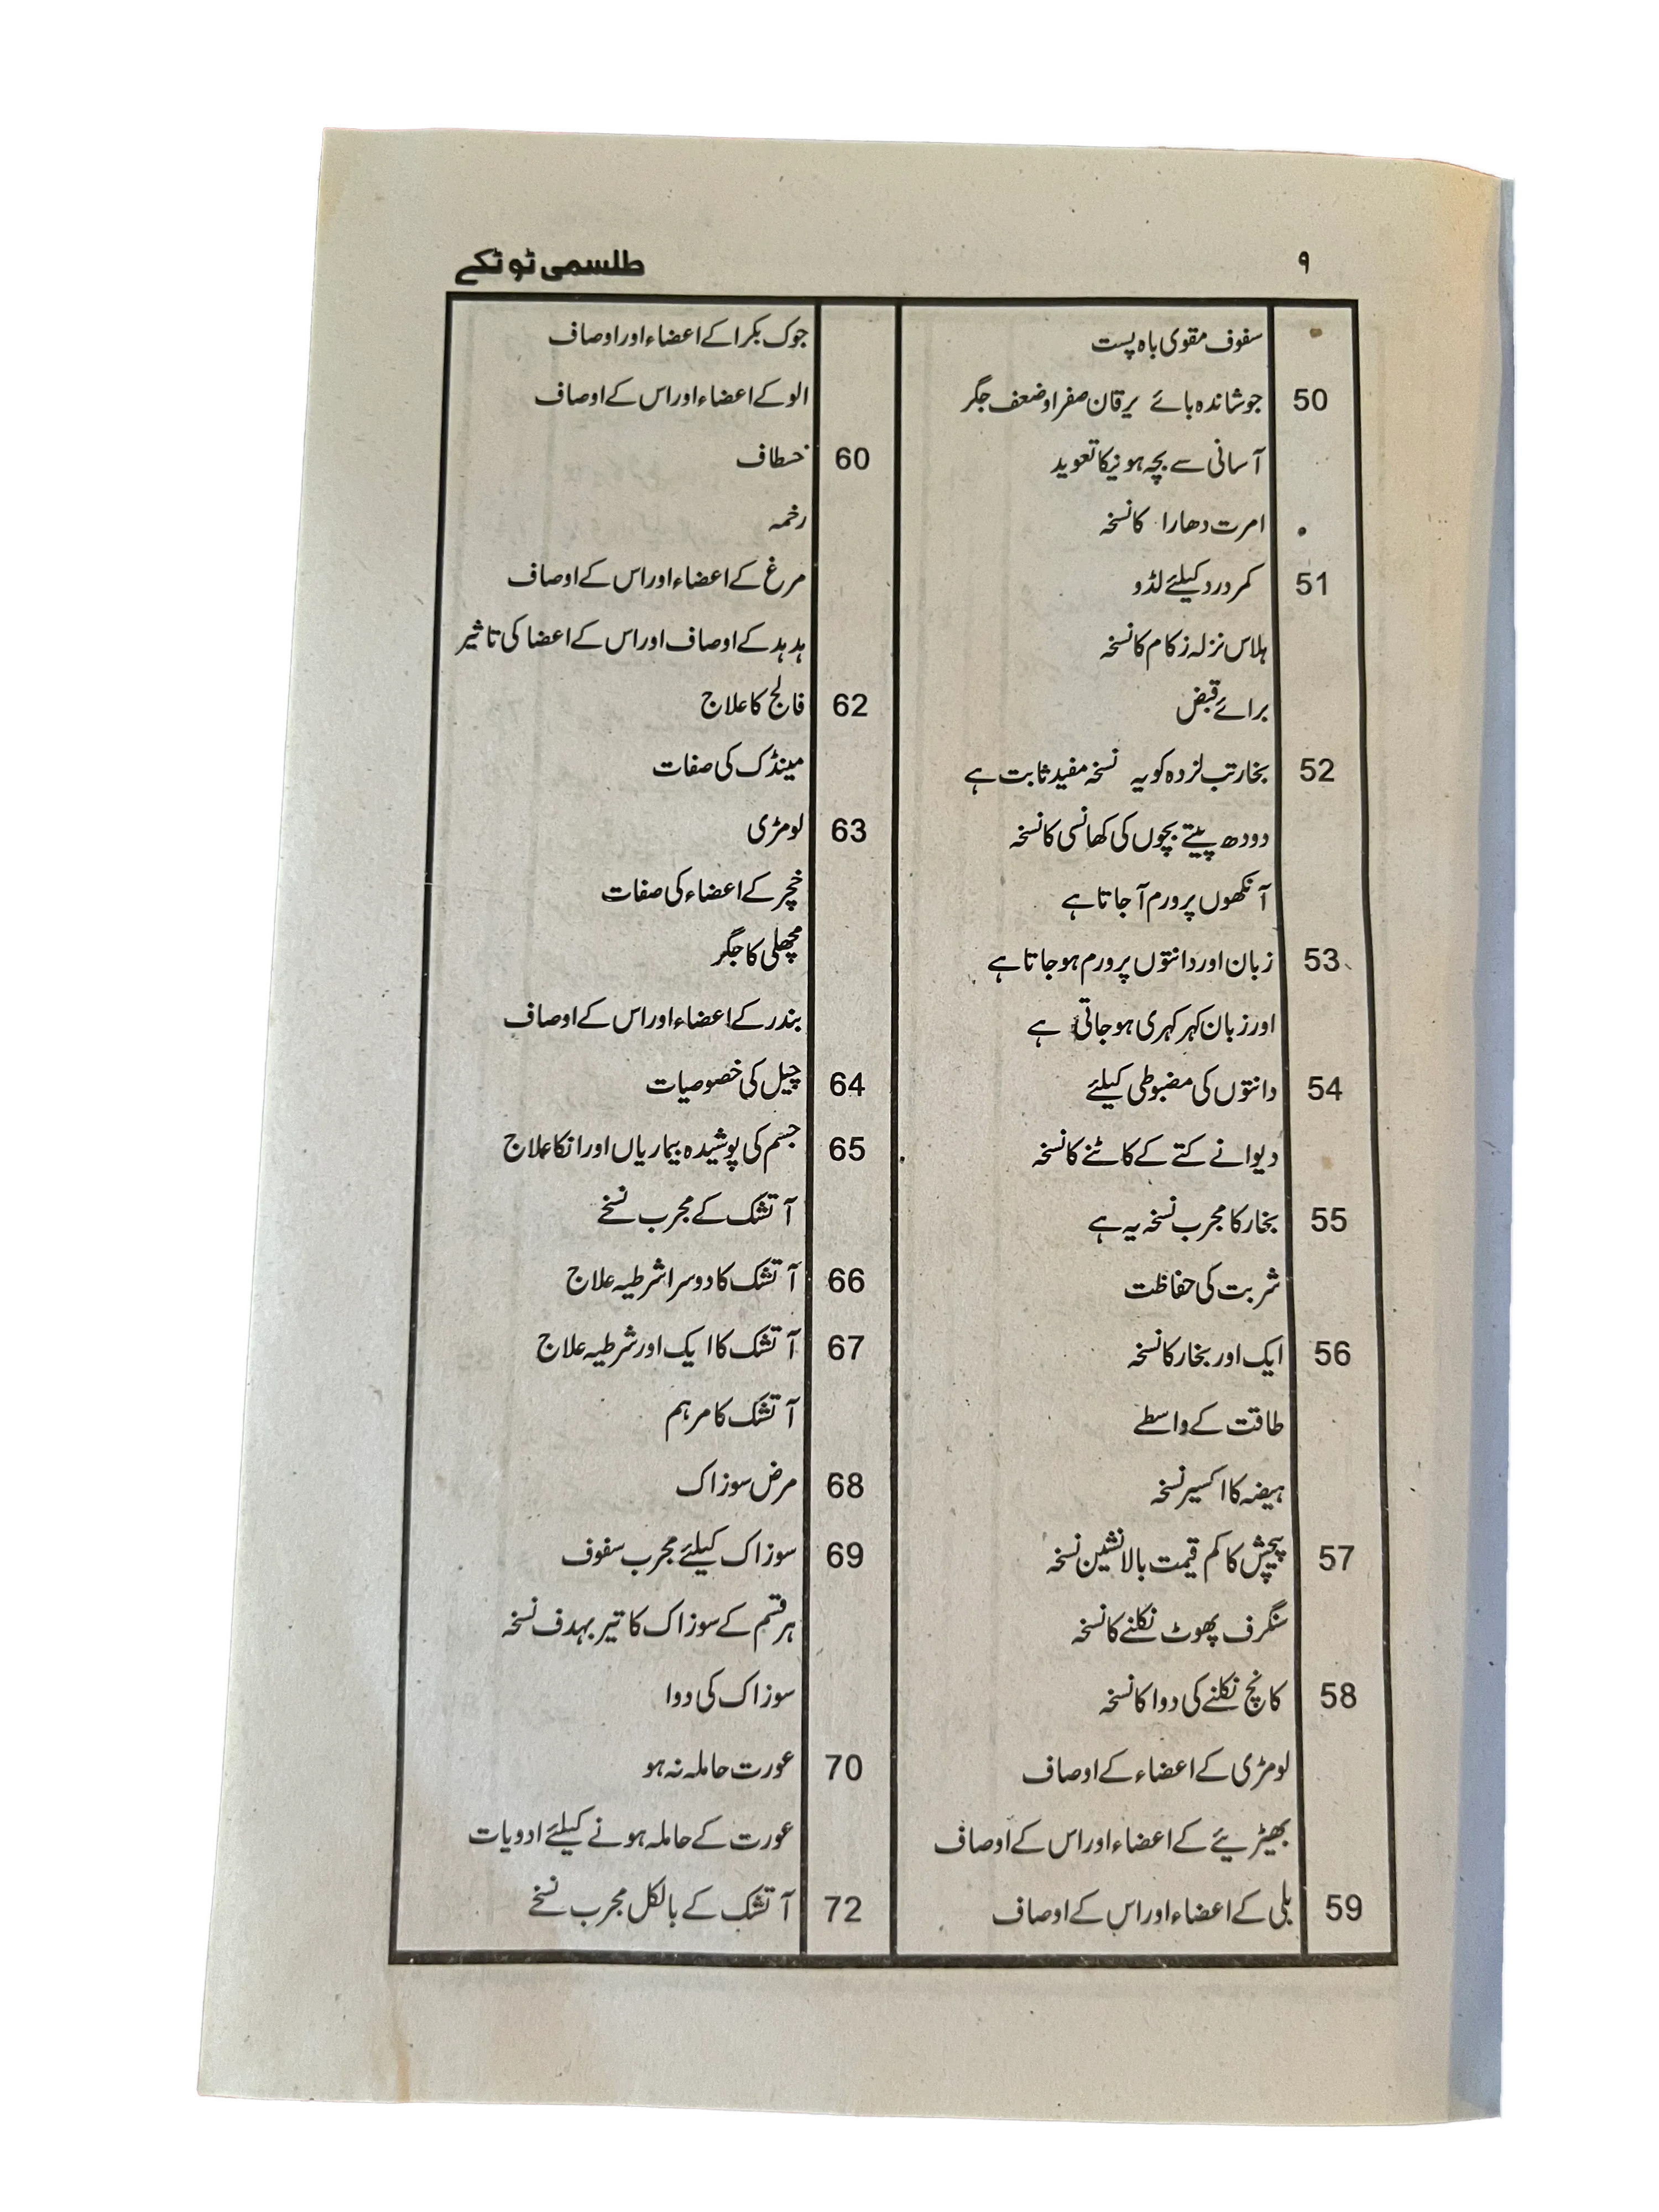 ۹
طلسمی ٹوٹکے
سفوف مقوی باہ پست
50 جوشاندہ بائے یرقان صفراوضعف جگر
آسانی سے بچہ ہونیکا تعوید
امرت دھارا کا نسخہ
51 کمر درد کیلئے لڈو
ہلاس نزلہ زکام کا نسخہ
برائے قبض
52 بخار تپ لزدہ کو یہ نسخہ مفید ثابت ہے
دودھ پیتے بچوں کی کھانسی کا نسخہ
آنکھوں پر ورم آجاتا ہے
53 زبان اور دانتوں پر ورم ہو جاتا ہے
اور زبان کہر کہری ہو جاتی ہے
54 دانتوں کی مضبوطی کیلئے
دیوانے کتے کے کاٹنے کا نسخہ
55 بخار کا مجرب نسخہ یہ ہے
شربت کی حفاظت
56 ایک اور بخار کا نسخہ
طاقت کے واسطے
ہیضہ کا اکسیر نسخہ
57 پیچش کا کم قیمت بالانشین نسخہ
سنگرف پھوٹ نکلنے کا نسخہ
58 کانچ نکلنے کی دوا کا نسخہ
لومڑی کے اعضاء کے اوصاف
بھیڑیئے کے اعضاء اور اس کے اوصاف
59 بلی کے اعضاء اور اس کے اوصاف
جوک بکرا کے اعضاء اور اوصاف
الو کے اعضاء اور اس کے اوصاف
60 خطاف
رخمہ
مرغ کے اعضاء اور اس کے اوصاف
ہدہد کے اوصاف اور اس کے اعضا کی تاثیر
62 فالج کا علاج
مینڈک کی صفات
63 لومڑی
خچر کے اعضاء کی صفات
مچھلی کا جگر
بندر کے اعضاء اور اس کے اوصاف
64 چیل کی خصوصیات
65 جسم کی پوشیدہ بیماریاں اور انکا علاج
آتشک کے مجرب نسخے
66 آتشک کا دوسرا شرطیہ علاج
67 آتشک کا ایک اور شرطیہ علاج
آتشک کا مرہم
68 مرض سوزاک
69 سوزاک کیلئے مجرب سفوف
ہر قسم کے سوزاک کا تیر بہدف نسخہ
سوزاک کی دوا
70 عورت حاملہ نہ ہو
عورت کے حاملہ ہونے کیلئے ادویات
72 آتشک کے بالکل مجرب نسخے